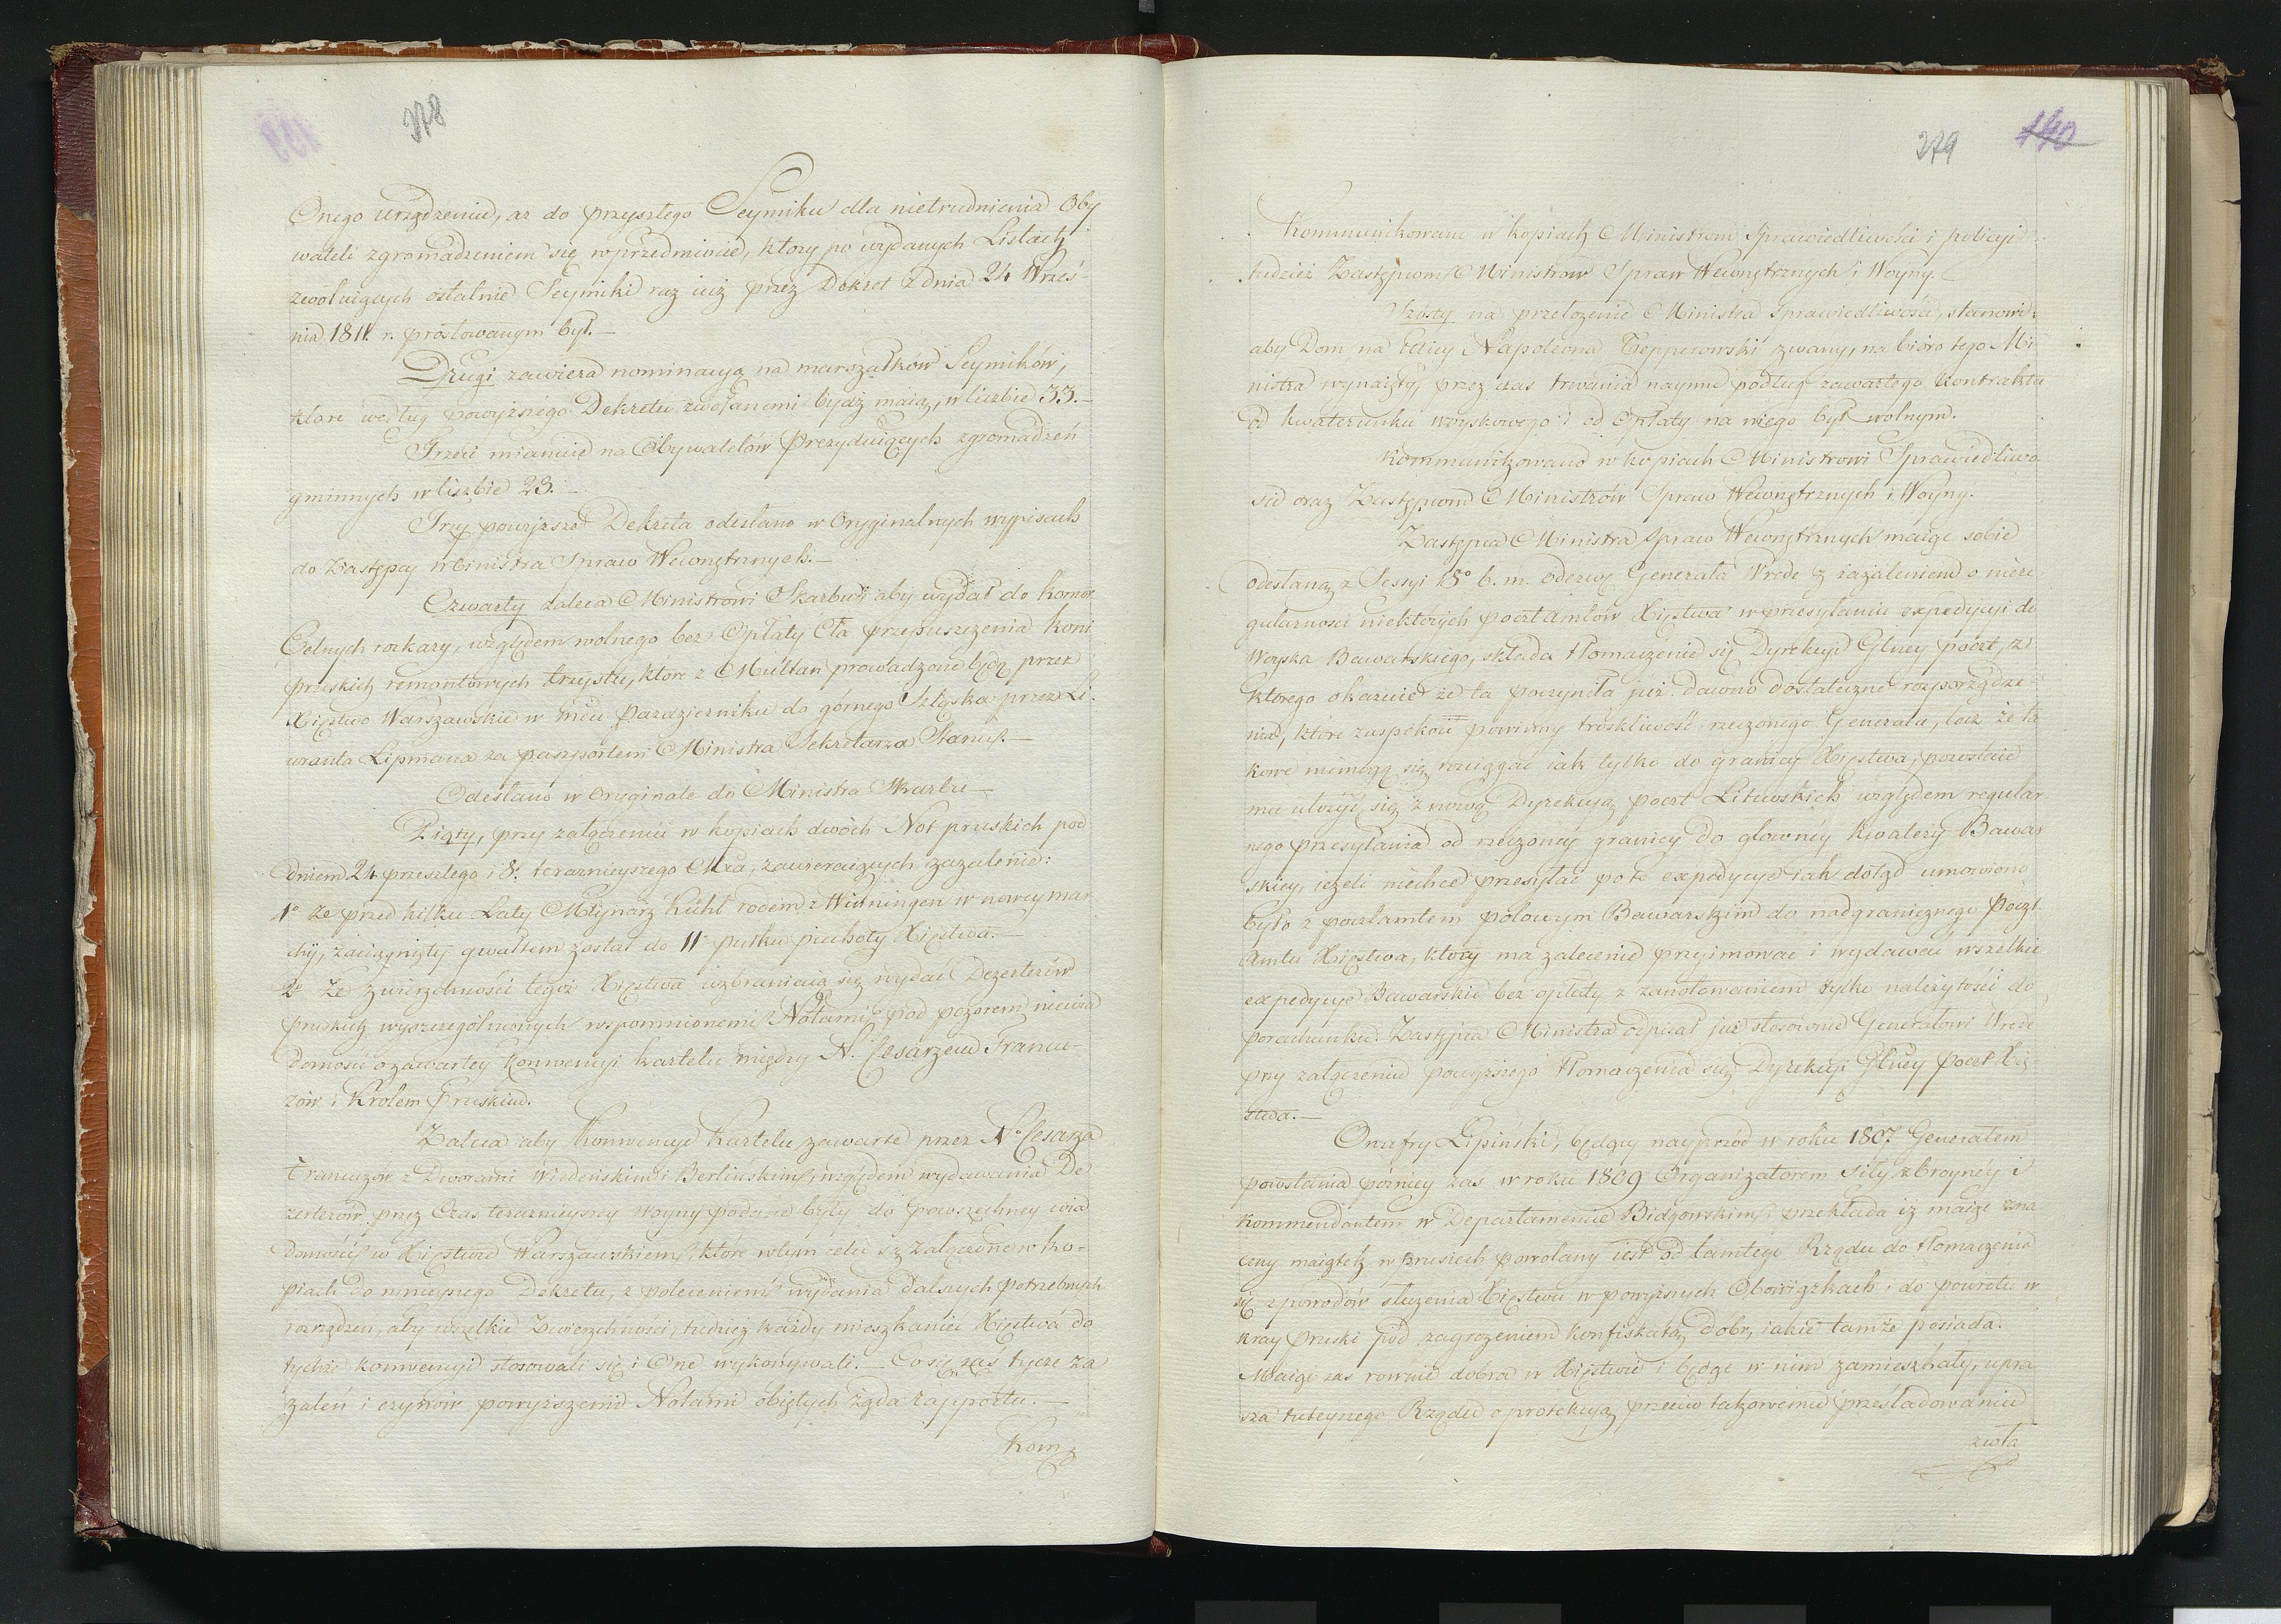 378
Onego urządzeniu, aż do przyszłego Seymiku dla nietrudnienia Oby
wateli zgromadzeniem się w przedmiocie, ktory po wydanych Listach
zwołuiących ostatnie Seymiki raz iuż przez Dekret z dnia 24 Wrześ-
nia 1811. r. prostowanym był.—
Drugi zawiera nominacyą na marszałków Seymików,
ktore według powyższego Dekretu zwołanemi bydź maią, w liczbie 33.—
Trzeci mianuie na Obywatelów Prezyduiących zgromadzeń
gminnych w liczbie 23.—
Trzy powyższe Dekreta odesłano w Oryginalnych wypisach
do Zastępcy Ministra Spraw Wewnętrznych.—
Czwarty zaleca Ministrowi Skarbu aby wydał do komor
Celnych rozkazy, względem wolnego bez Opłaty Cła przepuszczenia koni
pruskich remontowych trzystu, ktore z Multan prowadzone będą przez
Xięstwo Warszawskie w Mcu Październiku do górnego Szląska przez Li-
weranta Lipmana za paszportem Ministra Sekretarza Stanu.—
Odesłano w Oryginale do Ministra Skarbu—
Piąty, przy załączeniu w kopiach dwóch Not pruskich pod
dniem 24 przeszłego i 8. teraznieyszego Mca, zawieraiących zażalenie:
1o że przed kilku Laty Młynarz Kühl rodem z Winningen w nowey mar
chij, zaciągnięty gwałtem został do 11 pułku piechoty Xięstwa.—
2o Że zwierzchności tegoż Xięstwa wzbraniaią się wydać Dezerterów
pruskich wyszczególnionych wspomnionemi Notami pod pozorem niewia
domości o zawartey konwencyi kartelu między N. Cesarzem Francu-
zów i Krolem Pruskim.
Zaleca aby Konwencye kartelu zawarte przez No Cesarza
Francuzów z Dworami Wiedeńskim i Berlinskim, względem wydawania De
zerterów przez Czas teraznieyszey Woyny podane były do powszechney wia
domości w Xięstwie Warszawskiem, które w tym celu są załączone w ko-
piach do ninieyszego Dekretu, z poleceniem wydania dalszych potrzebnych
rozrządzeń, aby wszelkie Zwierzchności, tudzież każdy mieszkaniec Xięstwa do
tychże konwencyi stosowali się i One wykonywali.— Co się zaś tycze za
żaleń i czynów powyższemi Notami obiętych żąda rapportu.—
Kom
379
140
Kommunikowano w kopiach Ministrom Sprawiedliwości i policyi
tudzież Zastępcom Ministrów Spraw Wewnętrznych i Woyny.—
Szósty na przełożenie Ministra Sprawiedliwości, stanowi:
aby Dom na Ulicy Napoleona Tepperowski zwany, na bióro tego Mi
nistra wynaięty, przez czas trwania naymu podług zawartego kontraktu
od kwaterunku woyskowego i od Opłaty na niego był wolnym.
Kommunikowano w kopiach Ministrowi Sprawiedliwo
ści oraz Zastępcom Ministrów Spraw Wewnętrznych i Woyny.
Zastępca Ministra Spraw Wewnętrznych maiąc sobie
odesłaną z Sessyi 18o b. m. odezwę Generała Wrede z zażaleniem o niere
gularność niektorych pocztamtów Xięstwa w przesyłaniu expedycyi do
Woyska Bawarskiego, składa tłomaczenie się Dyrekcyi Głney poczt, z
ktorego okazuie że ta poczyniła już dawno dostateczne rozporządze
nia, które zaspokoić powinny troskliwość rzeczonego Generała, lecz że ta
kowe niemogą się rozciągać iak tylko do granicy Xięstwa, pozostaie
mu ułożyć się z nową Dyrekcyą poczt Litewskich względem regular
nego przesyłania od rzeczoney granicy do głowney kwatery Bawar
skiey, ieżeli niechce przesyłać po te expedycye iak dotąd umowiono
było z pocztamtem polowym Bawarskim do nadgranicznego Poczt
Amtu Xięstwa, ktory ma zalecenie przyimować i wydawać wszelkie
expedycye Bawarskie bez opłaty z zanotowaniem tylko należytości do
porachunku. Zastępca Ministra odpisał już stosownie Generałowi Wrede
przy załączeniu powyższego tłomaczenia się Dyrekcyi Głney Poczt Xię-
stwa.—
Onufry Lipiński, będący nayprzód w roku 1807 Generałem
powstania poźniey zas w roku 1809 Organizatorem siły zbroyney i
kommendantem w Departamencie Bidgowskim, przekłada iż maiąc zna
czny maiątek w Prusiech powołany iest od tamtego Rządu do tłomaczenia
się z powodów służenia Xięstwu w powyższych Obowiązkach i do powrotu w
kray Pruski pod zagrożeniem konfiskatą dobr, iakie tamże posiada.
Maiąc zas rownie dobra w Xięstwie i będąc w nim zamieszkały, upra
sza tuteyszego Rządu o protekcyą przeciw takowemu prześladowaniu
zwła